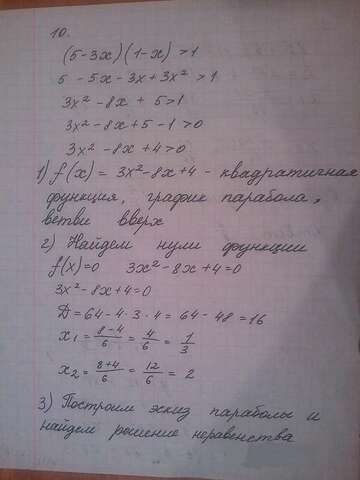 10.
(5-3x)(1-x) >1
5 - 5x - 3x + 3x² >1
3x² - 8x + 5>1
3x² - 8x + 5 - 1 >0
3x² - 8x + 4 >0
1) f(x) = 3x² - 8x + 4 - квадратичная
функция, график парабола,
ветви вверх
2) Найдем нули функции
f(x)=0 3x² - 8x + 4 = 0
3x² - 8x + 4 = 0
D = 64 - 4 · 3 · 4 = 64 - 48 = 16
x₁ = (8-4)/6 = 4/6 = 1/3
x₂ = (8+4)/6 = 12/6 = 2
3) Построим эскиз параболы и
найдем решение неравенства